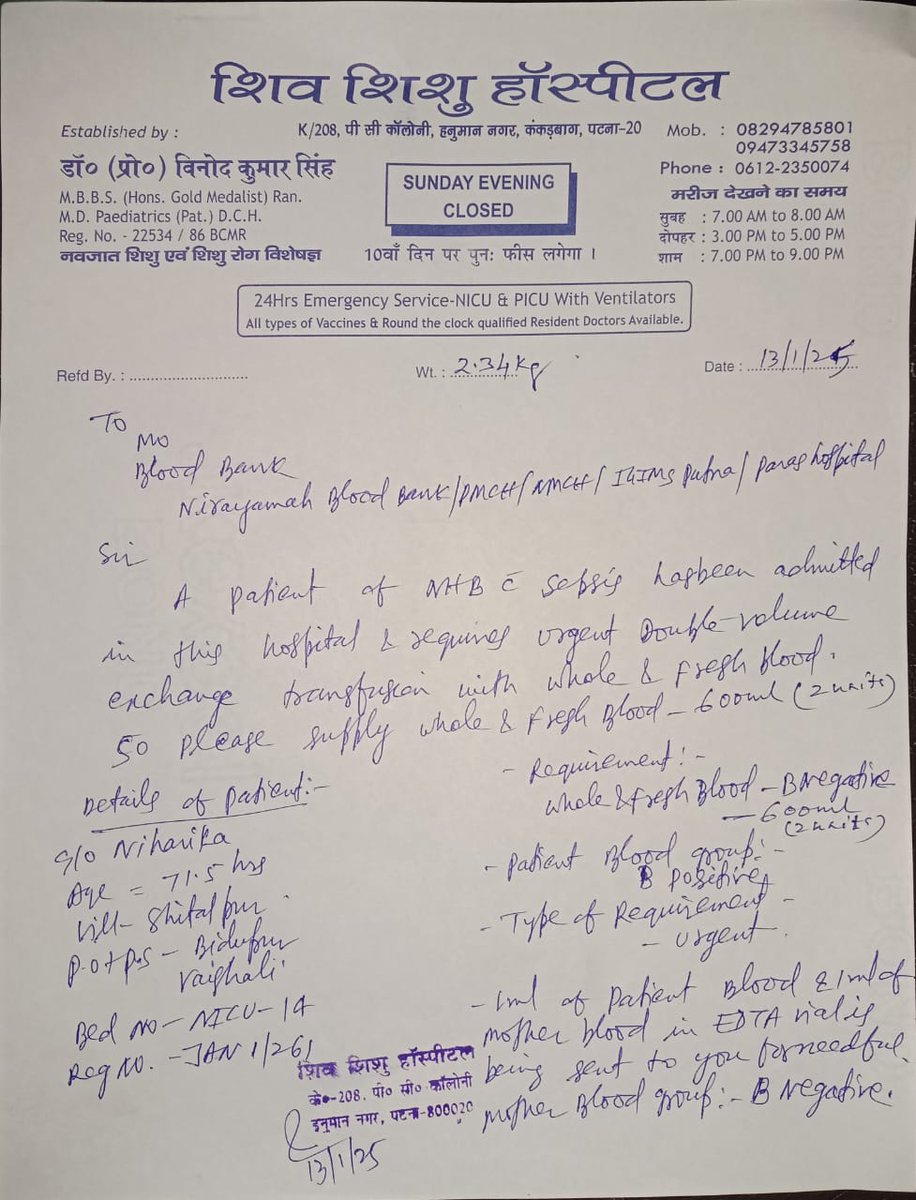 शिव शिशु हॉस्पीटल
Established by :
K/208, पी सी कॉलोनी, हनुमान नगर, कंकड़बाग, पटना-20
Mob. : 08294785801
09473345758
Phone : 0612-2350074
डॉ० (प्रो०) विनोद कुमार सिंह
M.B.B.S. (Hons. Gold Medalist) Ran.
M.D. Paediatrics (Pat.) D.C.H.
Reg. No. - 22534 / 86 BCMR
नवजात शिशु एवं शिशु रोग विशेषज्ञ
SUNDAY EVENING
CLOSED
10वाँ दिन पर पुनः फीस लगेगा ।
मरीज देखने का समय
सुबह : 7.00 AM to 8.00 AM
दोपहर : 3.00 PM to 5.00 PM
शाम : 7.00 PM to 9.00 PM
24Hrs Emergency Service-NICU & PICU With Ventilators
All types of Vaccines & Round the clock qualified Resident Doctors Available.
Refd By. : ............................
Wt. : 2.34kg
Date : 13/1/25
To
MO
Blood Bank
Nirayamah Blood Bank/PMCH/NMCH/IGIMS Patna/Paras hospital
Sir
A patient of NHB c̄ sepsis hasbeen admitted
in this hospital & requires urgent Double-volume
exchange transfusion with whole & Fresh blood.
So please supply whole & Fresh Blood - 600ml (2 units)
Details of patient:-
G/O Niharika
Age = 71.5 hrs
Vill- Shitalpur
P.O+P.S - Bidupur
Vaishali
Bed No - NICU-14
Reg No. - JAN 1/261
- Requirement:-
whole & Fresh Blood - B Negative
- 600ml
(2 units)
- Patient Blood group:-
B positive
- Type of Requirement -
- Urgent.
- 1ml of Patient Blood & 1ml of
mother blood in EDTA vial is
being sent to you for needful.
mother Blood group:- B Negative.
शिव शिशु हॉस्पीटल
के०-208, पी० सी० कॉलोनी
हनुमान नगर, पटना-800020
13/1/25